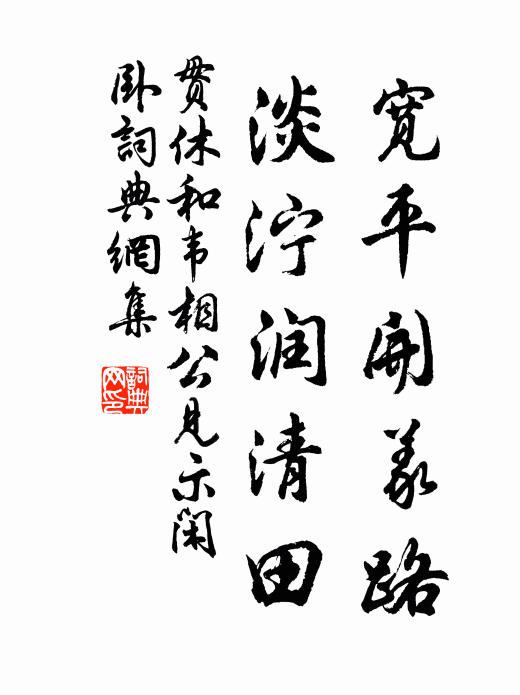 寬平開義路
淡泞润清田
贯休和韦相公見示閑
卧詞典網集
詞典
网印